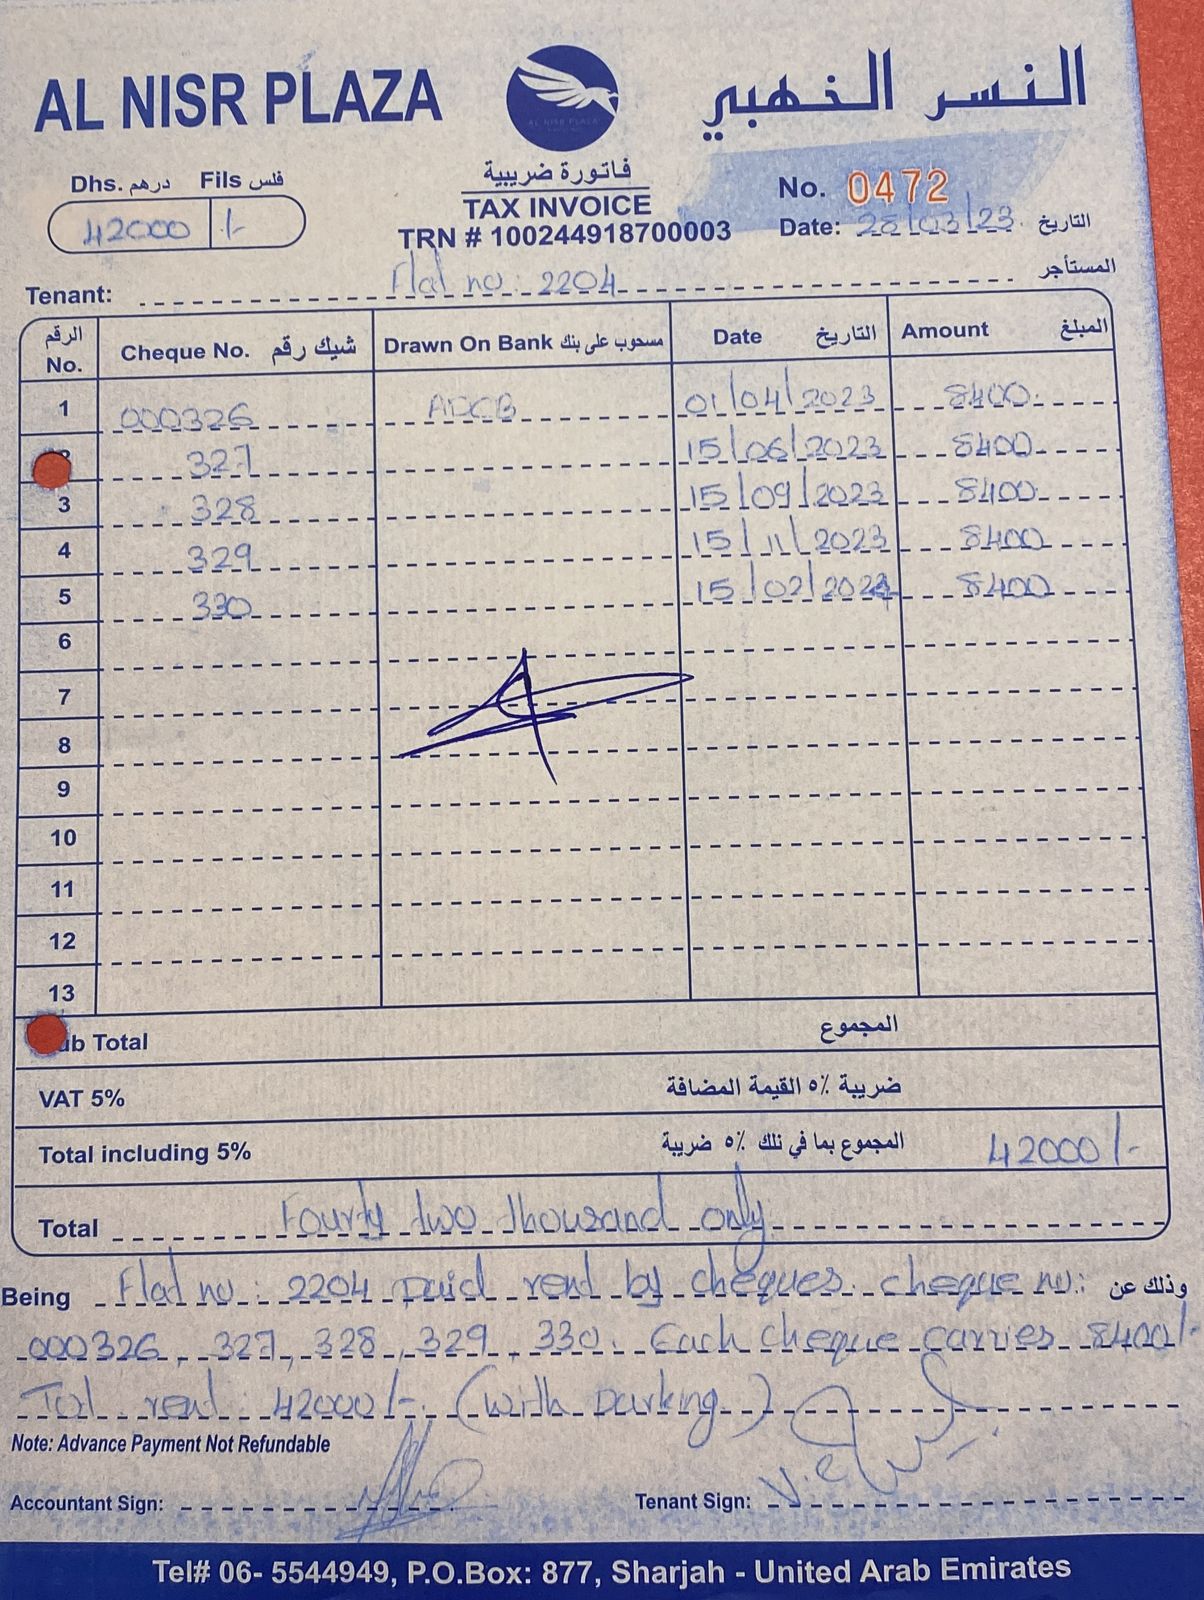 AL NISR PLAZA
النسر الذهبي
AL NISR PLAZA
Dhs. درهم Fils فلس
42000 /-
فاتورة ضريبية
TAX INVOICE
TRN # 100244918700003
No. 0472
Date: 28/03/23 التاريخ
Tenant: Flat no: 2204 المستأجر
الرقم No. Cheque No. شيك رقم Drawn On Bank مسحوب على بنك Date التاريخ Amount المبلغ
1 000326 ADCB 01/04/2023 8400
327 15/06/2023 8400
3 328 15/09/2023 8400
4 329 15/11/2023 8400
5 330 15/02/2024 8400
6
7
8
9
10
11
12
13
ub Total المجموع
VAT 5% ضريبة ٥٪ القيمة المضافة
Total including 5% المجموع بما في تلك ٥٪ ضريبة 42000/-
Total Fourty two thousand only
Being Flat no: 2204 paid rent by cheques. cheque no: وذلك عن
000326, 327, 328, 329, 330. Each cheque carries 8400/-
Totl rent: 42000/- (with parking)
Note: Advance Payment Not Refundable
Accountant Sign: Tenant Sign:
Tel# 06- 5544949, P.O.Box: 877, Sharjah - United Arab Emirates